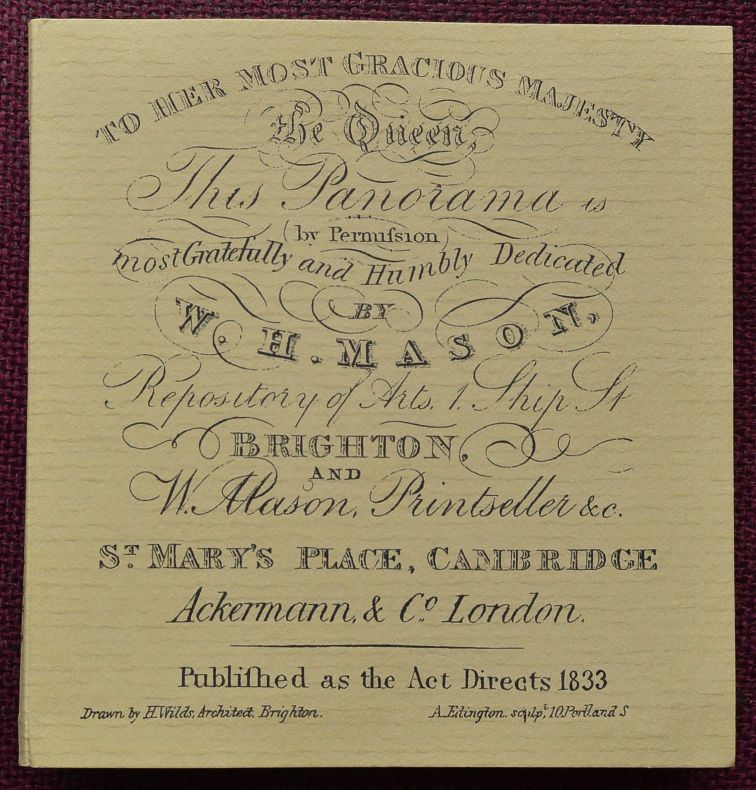 TO HER MOST GRACIOUS MAJESTY
the Queen,
This Panorama is
(by Permiſsion)
most Gratefully and Humbly Dedicated
BY
W. H. MASON.
Repository of Arts, 1. Ship St
BRIGHTON,
AND
W. Mason, Printseller &c.
ST. MARY'S PLACE, CAMBRIDGE
Ackermann, & Co. London.
Publiſhed as the Act Directs 1833
Drawn by H. Wilds, Architect, Brighton.
A. Edington. sculpt, 10, Portland S